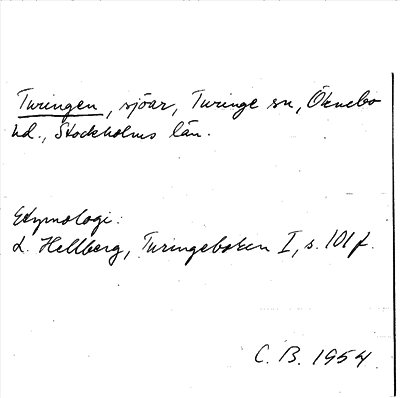 Turingen, sjöar, Turinge sn, Öknebo
hd., Stockholms län.
Etymologi:
L. Hellberg, Turingeboken I, s. 101 f.
C. B. 1954